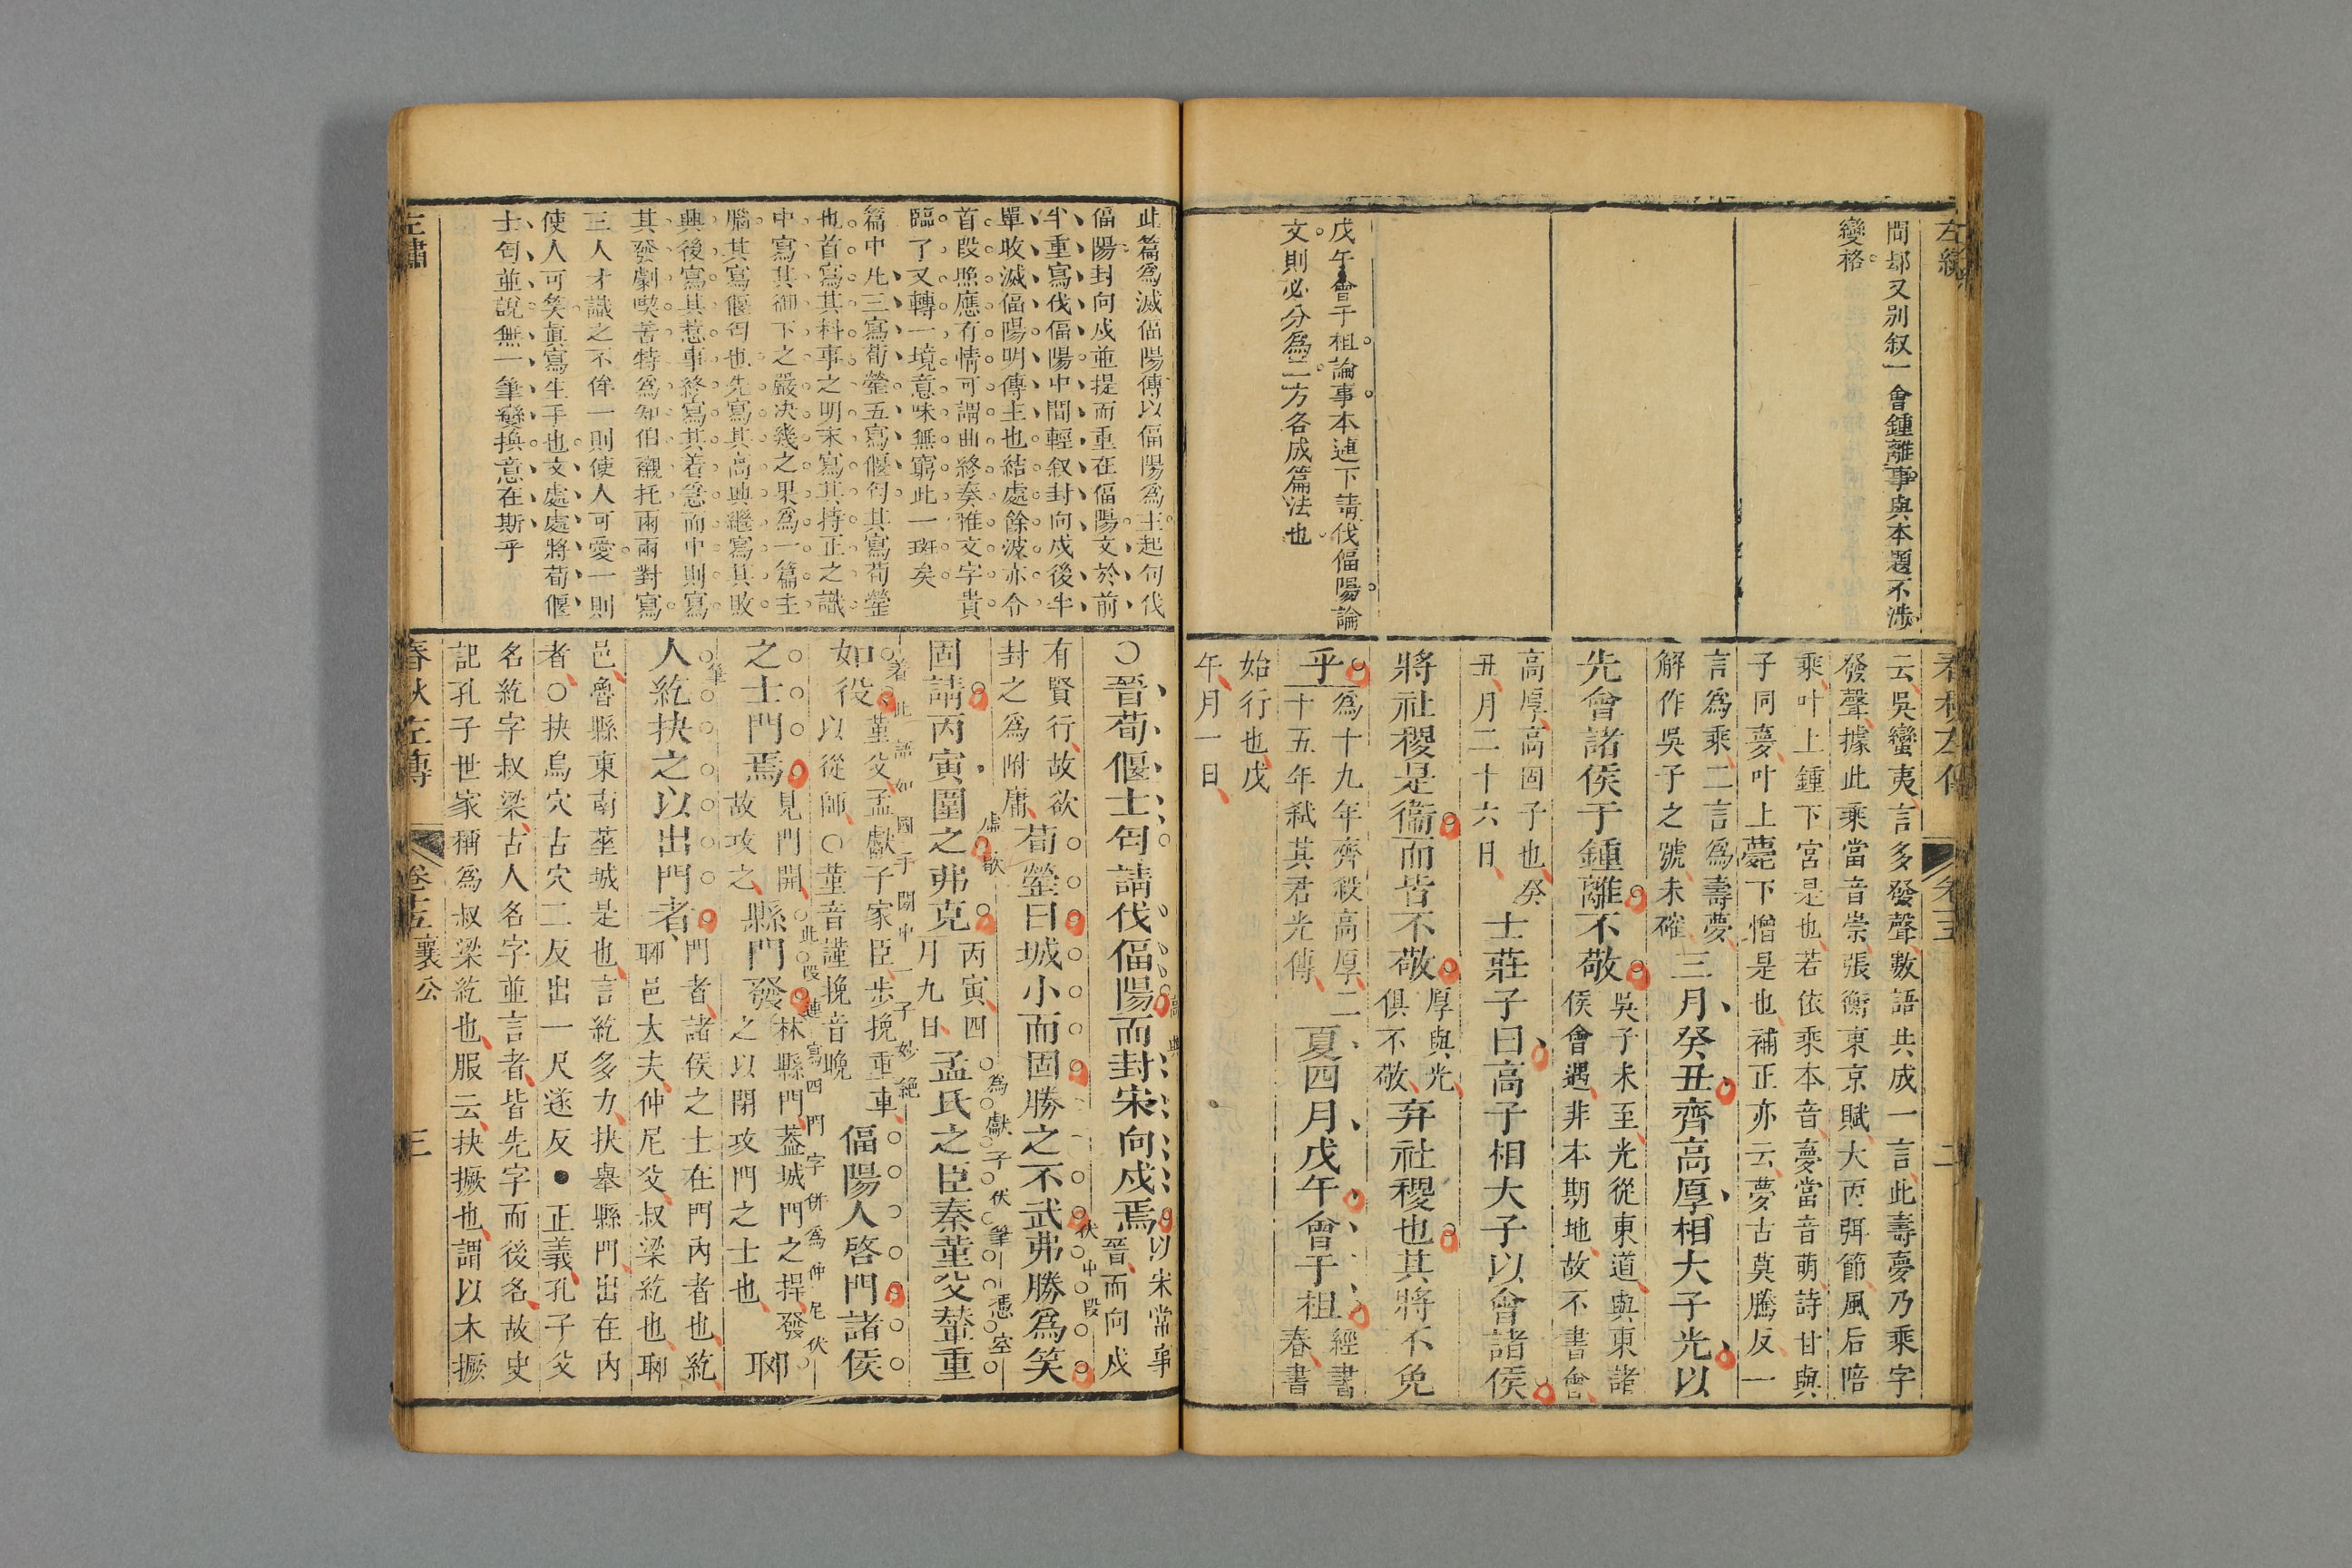 間却又別叙一會鍾離事與本題不涉
變格
戊午會于柤論事本連下請伐偪陽論
文則必分爲二方各成篇法也
云吳蠻夷言多發聲數語共成一言此壽夢乃乘字
發聲據此乘當音崇張衡東京賦大丙弭節風后陪
乘叶上鍾下宮是也若依乘本音夢當音萌詩甘與
子同夢叶上薨下憎是也補正亦云夢古莫騰反一
言爲乘二言爲壽夢
解作吳子之號未確
三月癸丑齊高厚相大子光以
先會諸侯于鍾離不敬
吳子未至光從東道與東諸
侯會遇非本期地故不書會
高厚高固子也癸
丑月二十六日
士莊子曰高子相大子以會諸侯
將社稷是衞而皆不敬
厚與光
俱不敬
弃社稷也其將不免
乎
爲十九年齊殺高厚二
十五年弑其君光傳
夏四月戊午會于柤
經書
春書
始行也戊
午月一日
左繡
此篇爲滅偪陽傳以偪陽爲主起句伐
偪陽封向戌並提而重在偪陽文於前
半重寫伐偪陽中間輕叙封向戌後半
單收滅偪陽明傳主也結處餘波亦令
首段照應有情可謂曲終奏雅文字貴
臨了又轉一境意味無窮此一斑矣
篇中凡三寫荀罃五寫偃匄其寫荀罃
也首寫其料事之明末寫其持正之識
中寫其御下之嚴决幾之果爲一篇主
腦其寫偃匄也先寫其高興繼寫其敗
興後寫其惹事終寫其着急而中則寫
其發劇喫苦特爲知伯襯托兩兩對寫
三人才識之不侔一則使人可愛一則
使人可笑眞寫生手也文處處將荀偃
士匄並說無一筆變換意在斯乎
○晉荀偃士匄請伐偪陽而封宋向戌焉
以宋常事
晉而向戌
有賢行故欲
封之爲附庸
荀罃曰城小而固勝之不武弗勝爲笑
伏中段
固請丙寅圍之弗克
丙寅四
月九日
孟氏之臣秦堇父輦重
爲獻子伏筆
如役
堇父孟獻子家臣步挽重車
以從師○堇音謹挽音晚
偪陽人啓門諸侯
之士門焉
見門開
故攻之
縣門發
林縣門葢城門之捍發
之以閉攻門之士也
郰
此段連寫四門字併爲仲尼伏
筆
人紇抉之以出門者
門者諸侯之士在門內者也紇
郰邑大夫仲尼父叔梁紇也郰
邑魯縣東南莝城是也言紇多力抉舉縣門出在內
者○抉烏穴古穴二反出一尺遂反●正義孔子父
名紇字叔梁古人名字並言者皆先字而後名故史
記孔子世家稱爲叔梁紇也服云抉撅也謂以木撅
春秋左傳
卷十五襄公
三